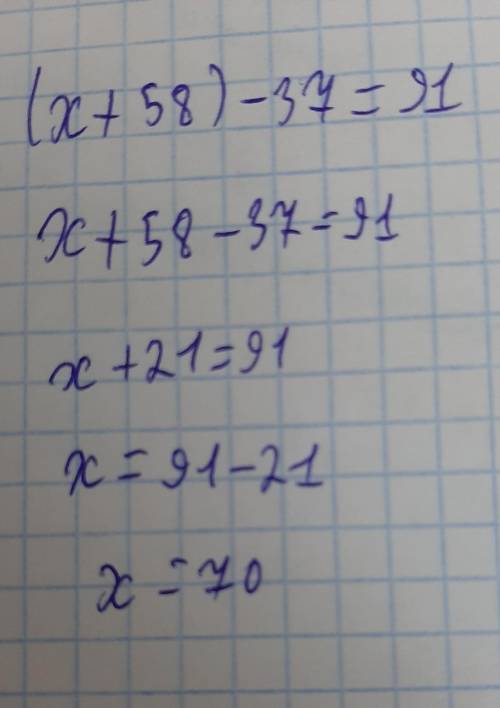 (x + 58) - 37 = 91
x + 58 - 37 = 91
x + 21 = 91
x = 91 - 21
x = 70